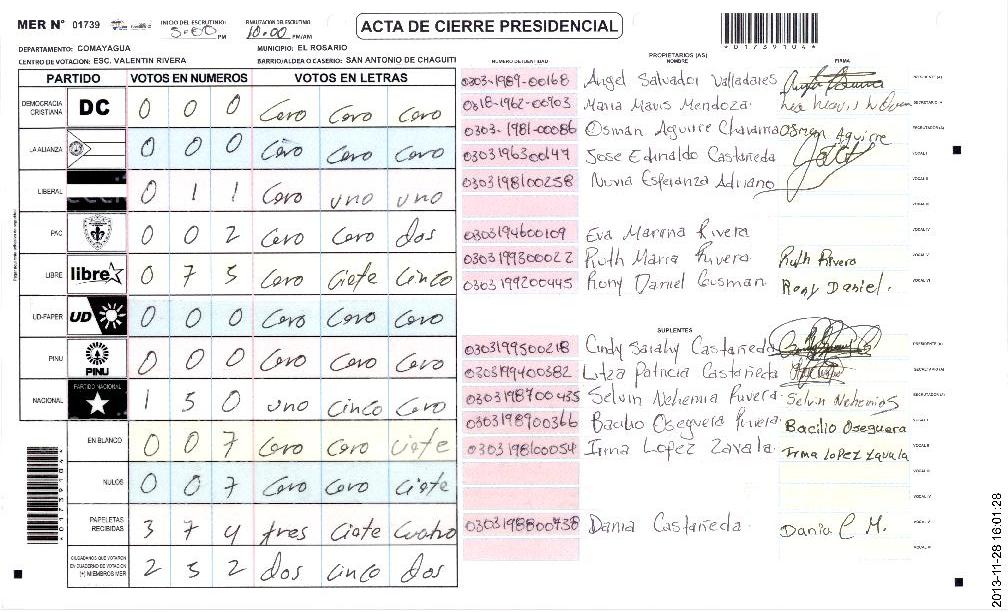 MER N° 01739
INICIO DEL ESCRUTINIO
5:00 PM
FINALIZACION DEL ESCRUTINIO
10:00 PM/AM
ACTA DE CIERRE PRESIDENCIAL
01739104
DEPARTAMENTO: COMAYAGUA
MUNICIPIO: EL ROSARIO
CENTRO DE VOTACION: ESC. VALENTIN RIVERA
BARRIO/ALDEA O CASERIO: SAN ANTONIO DE CHAGUITI
PARTIDO VOTOS EN NUMEROS VOTOS EN LETRAS
DEMOCRACIA CRISTIANA DC 0 0 0 Cero Cero Cero
LA ALIANZA 0 0 0 Cero Cero Cero
LIBERAL 0 1 1 Cero uno uno
PAC 0 0 2 Cero Cero dos
LIBRE libre 0 7 5 Cero Ciete Cinco
UD-FAPER UD 0 0 0 Cero Cero Cero
PINU PINU 0 0 0 Cero Cero Cero
NACIONAL PARTIDO NACIONAL 1 5 0 uno Cinco Cero
EN BLANCO 0 0 7 Cero Cero Ciete
NULOS 0 0 7 Cero Cero Ciete
PAPELETAS RECIBIDAS 3 7 4 tres Ciete Cuatro
CIUDADANOS QUE VOTARON EN CUADERNO DE VOTACION (+) MIEMBROS MER 2 5 2 dos Cinco dos
NUMERO DE IDENTIDAD PROPIETARIOS (AS) FIRMA
0303-1989-00168 Angel Salvador Valladares PRESIDENTE (A)
0318-1962-00903 Maria Mavis Mendoza SECRETARIO (A)
0303-1981-00086 Osman Aguirre Osman Aguirre ESCRUTADOR (A)
0303196300147 Jose Edinaldo Castañeda VOCAL I
0303198100258 Nuvia Esperanza Adriano VOCAL II
VOCAL III
0303194600109 Eva Marina Rivera VOCAL IV
0303199300022 Ruth Maria Rivera Ruth Rivera VOCAL V
0303199200445 Rony Daniel Gusman Rony Daniel. VOCAL VI
SUPLENTES
0303199500218 Cindy Sarahy Castañeda PRESIDENTE (A)
0303199400382 Litza Patricia Castañeda SECRETARIO (A)
0303198700455 Selvin Nehemia Rivera Selvin Nehemias ESCRUTADOR (A)
0303198900366 Bacilio Oseguera Rivera Bacilio Oseguera VOCAL I
0303198100054 Irma Lopez Zavala Irma Lopez Zavala VOCAL II
VOCAL III
VOCAL IV
0303198800738 Dania Castañeda Dania C M. VOCAL V
VOCAL VI
01739104
2013-11-28 16:01:28